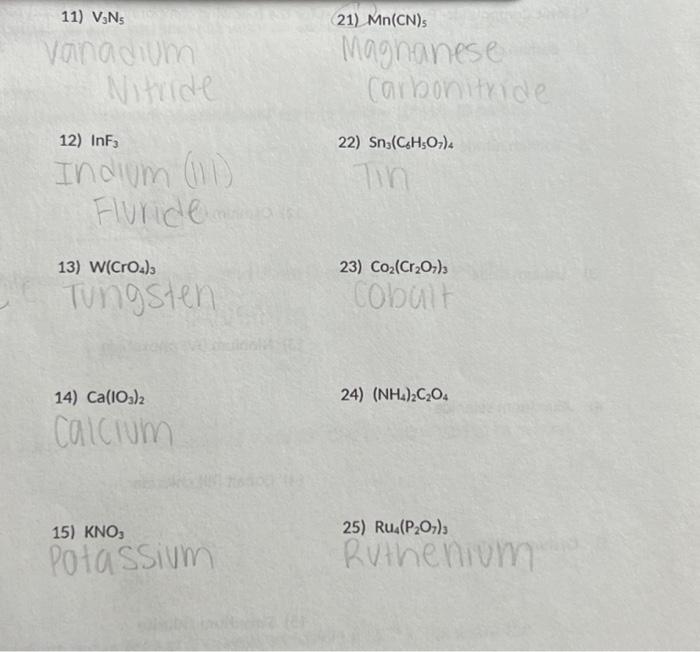 11) V₃N₅
Vanadium
Nitride
12) InF₃
Indium (III)
Fluride
13) W(CrO₄)₃
Tungsten
14) Ca(IO₃)₂
Calcium
15) KNO₃
Potassium
21) Mn(CN)₅
Magnanese
Carbonitride
22) Sn₃(C₆H₅O₇)₄
Tin
23) Co₂(Cr₂O₇)₃
Cobalt
24) (NH₄)₂C₂O₄
25) Ru₄(P₂O₇)₃
Ruthenium